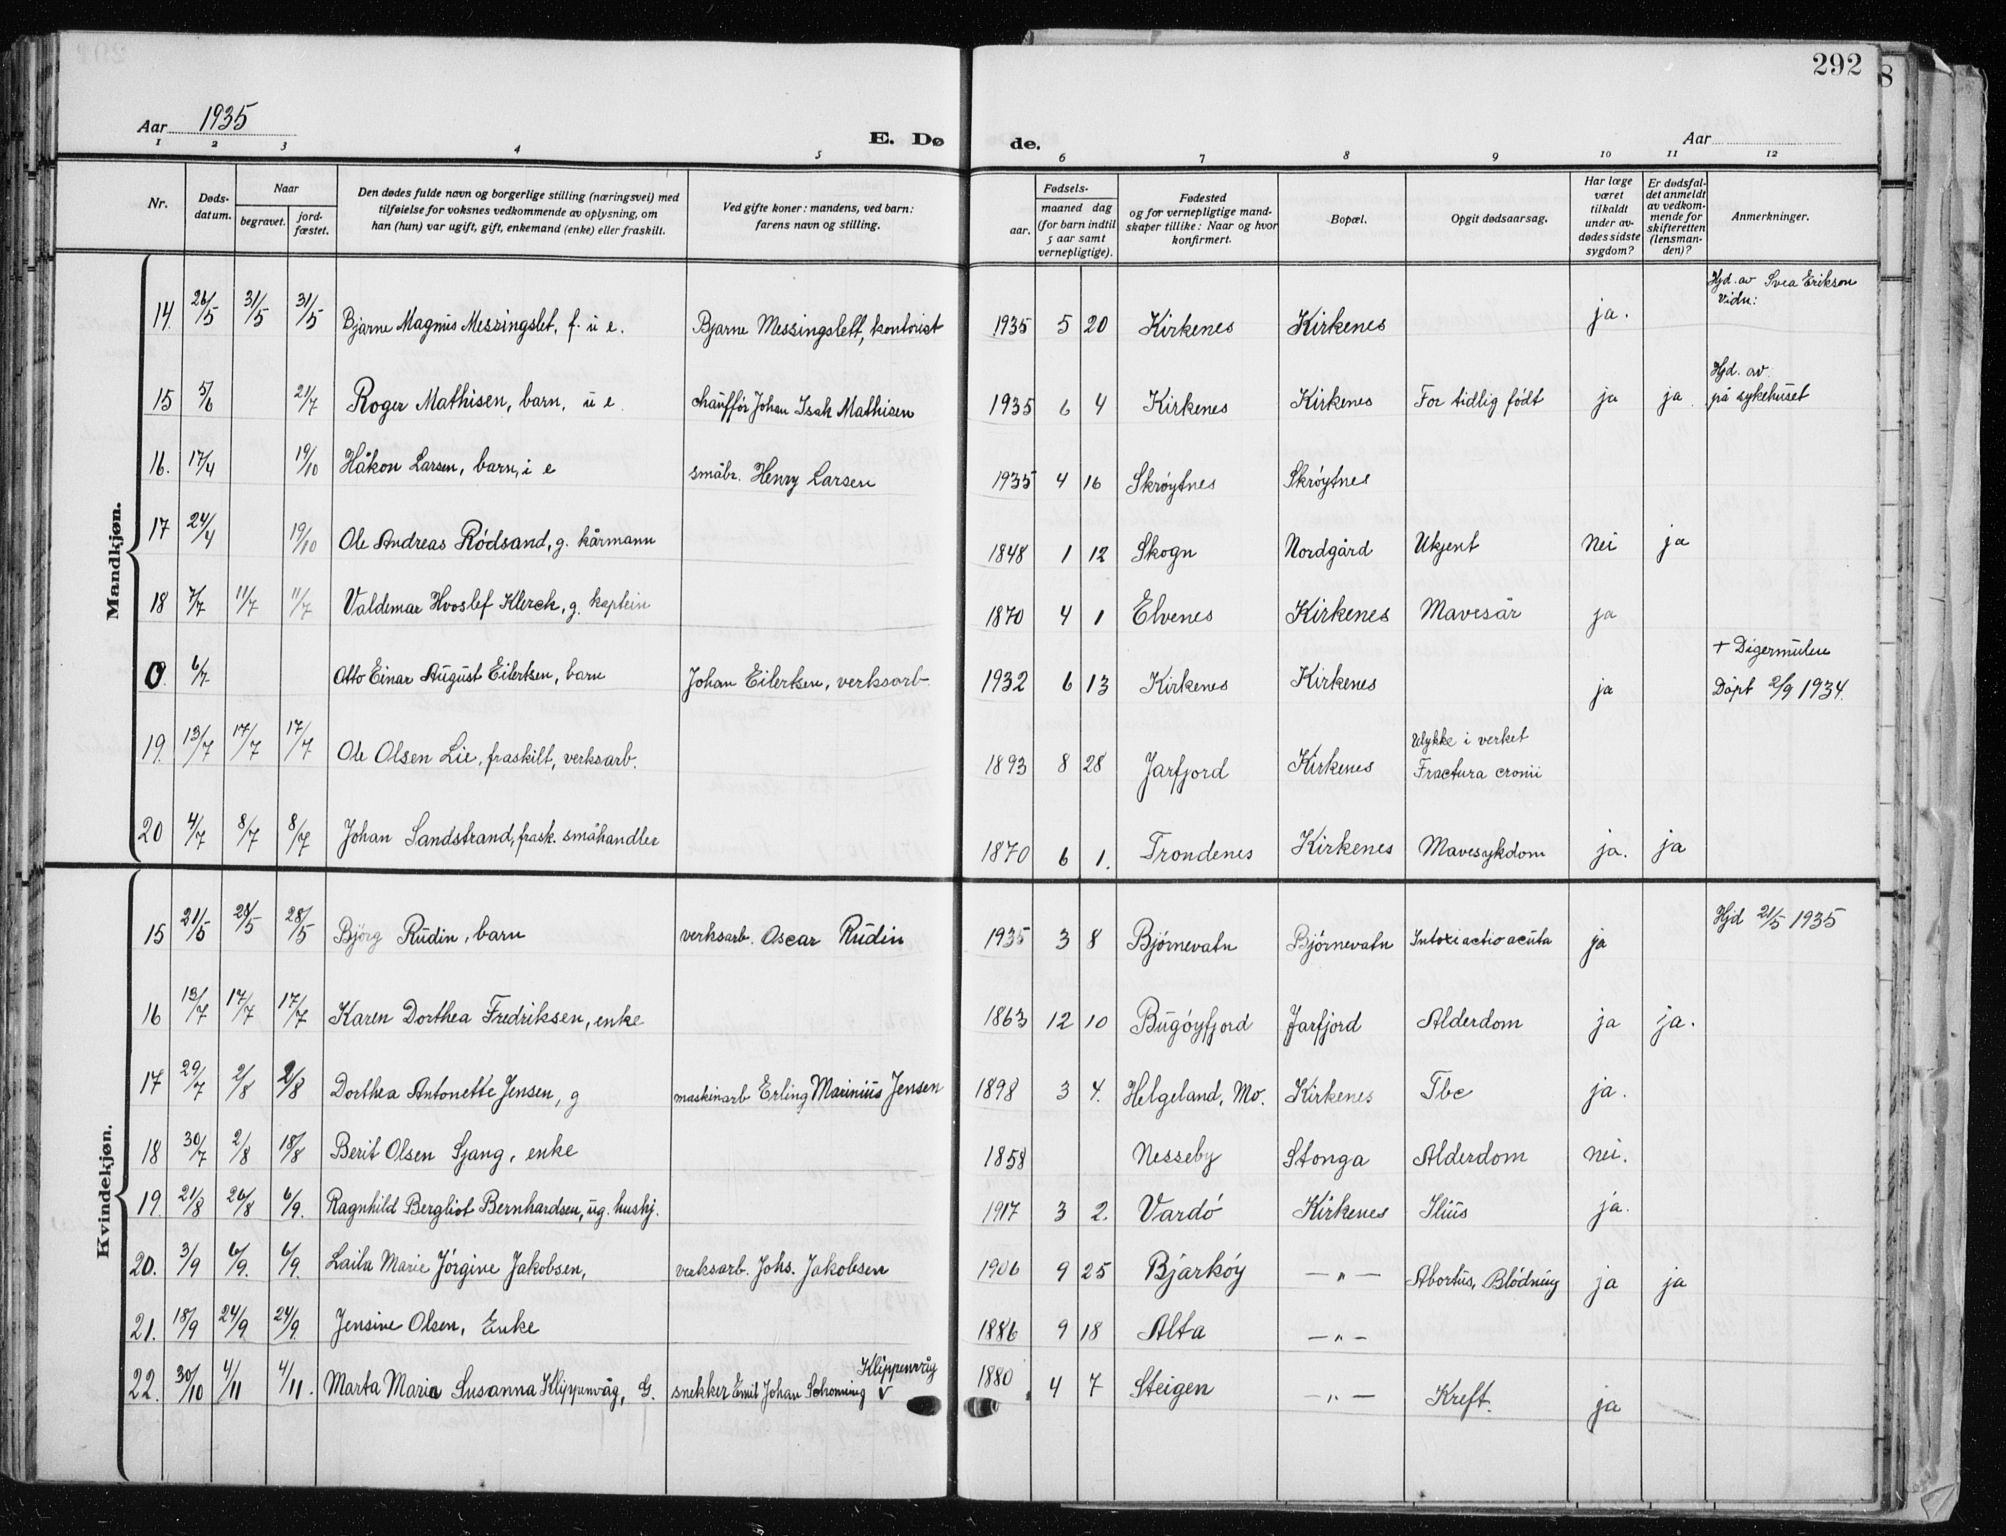 292
Aar 1935
E. Dø
de.
Aar
1 2 3 4 5 6 7 8 9 10 11 12
Nr.
Døds-
datum.
Naar
begravet.
jord-
fæstet.
Den dødes fulde navn og borgerlige stilling (næringsvei) med
tilføielse for voksnes vedkommende av oplysning, om
han (hun) var ugift, gift, enkemand (enke) eller fraskilt.
Ved gifte koner: mandens, ved barn:
farens navn og stilling.
Fødsels-
aar.
maaned dag
(for barn indtil
5 aar samt
vernepligtige).
Fødested
og for vernepligtige mand-
skaper tillike: Naar og hvor
konfirmert.
Bopæl.
Opgit dødsaarsag.
Har læge
været
tilkaldt
under av-
dødes sidste
sygdom?
Er dødsfal-
det anmeldt
av vedkom-
mende for
skifteretten
(lensman-
den)?
Anmerkninger.
Mandkjøn.
Hjd. av Svea Erikson
Vidn:
14. 26/5 31/5 31/5 Bjarne Magnus Messingslet, f. u e. Bjarne Messingslett, kontorist 1935 5 20 Kirkenes Kirkenes ja.
Hjd. av
15 5/6 21/7 Roger Mathisen, barn, u e chaufför Johan Isak Mathisen 1935 6 4 Kirkenes Kirkenes For tidlig født ja ja. på sykehuset
16. 17/4 19/10 Håkon Larsen, barn, i e småbr. Henry Larsen 1935 4 16 Skrøytnes Skrøytnes
17 24/4 19/10 Ole Andreas Rødsand, g. kårmann 1848 1 12 Skogn Nordgård Ukjent Nei ja
18 7/7 11/7 11/7 Valdemar Hvoslef Klerck, g. kaptein 1870 4 1 Elvenes Kirkenes Mavesår ja
+ Digermulen
0. 6/7 Otto Einar August Eilertsen, barn Johan Eilertsen, verksarb. 1932 6 13 Kirkenes Kirkenes ja Døpt 2/9 1934.
Ulykke i verket
19. 13/7 17/7 17/7 Ole Olsen Lie, fraskilt, verksarb. 1893 8 28 Jarfjord Kirkenes Fractura cranii
20 4/7 8/7 8/7 Johan Sandstrand, frask. småhandler 1870 6 1. Trondenes Kirkenes Mavesykdom ja. ja
Kvindekjøn.
15 21/5 28/5 28/5 Bjørg Rudin, barn verksarb. Oscar Rudin 1935 3 8 Bjørnevatn Bjørnevatn Intoxi actio acuta ja Hjd 21/5 1935
16 13/7 17/7 17/7 Karen Dorthea Fredriksen, enke 1863 12 10 Bugøyfjord Jarfjord Alderdom ja ja.
17 29/7 2/8 2/8 Dorthea Antonette Jensen, g maskinarb Erling Marinius Jensen 1898 3 4. Helgeland, Mo. Kirkenes Tbc ja.
18 30/7 2/8 18/8 Berit Olsen Sjang, enke 1858 Nesseby Stonga Alderdom nei.
19. 21/8 26/8 6/9. Ragnhild Bergliot Bernhardsen, ug. hushj. 1917 3 2. Vardø Kirkenes Ilius ja.
20. 3/9 6/9. 6/9. Laila Marie Jørgine Jakobsen, verksarb. Johs. Jakobsen 1906 9 25 Bjarkøy — „ — Abortus, Blødning ja ja
21. 18/9 24/9 24/9. Jensine Olsen, Enke 1886 9 18 Alta — „ —
Klippenvåg
22. 30/10 4/11 4/11. Marta Maria Susanna Klippenvåg, G. snekker Emil Johan Schønning v 1880 4 7 Steigen — „ — Kreft. ja